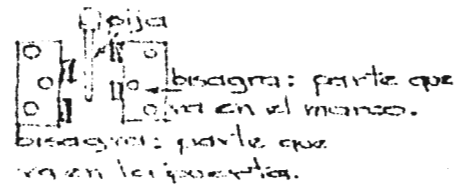 pija
bisagra: parte que
va en el marco.
bisagra: parte que
va en la puerta.